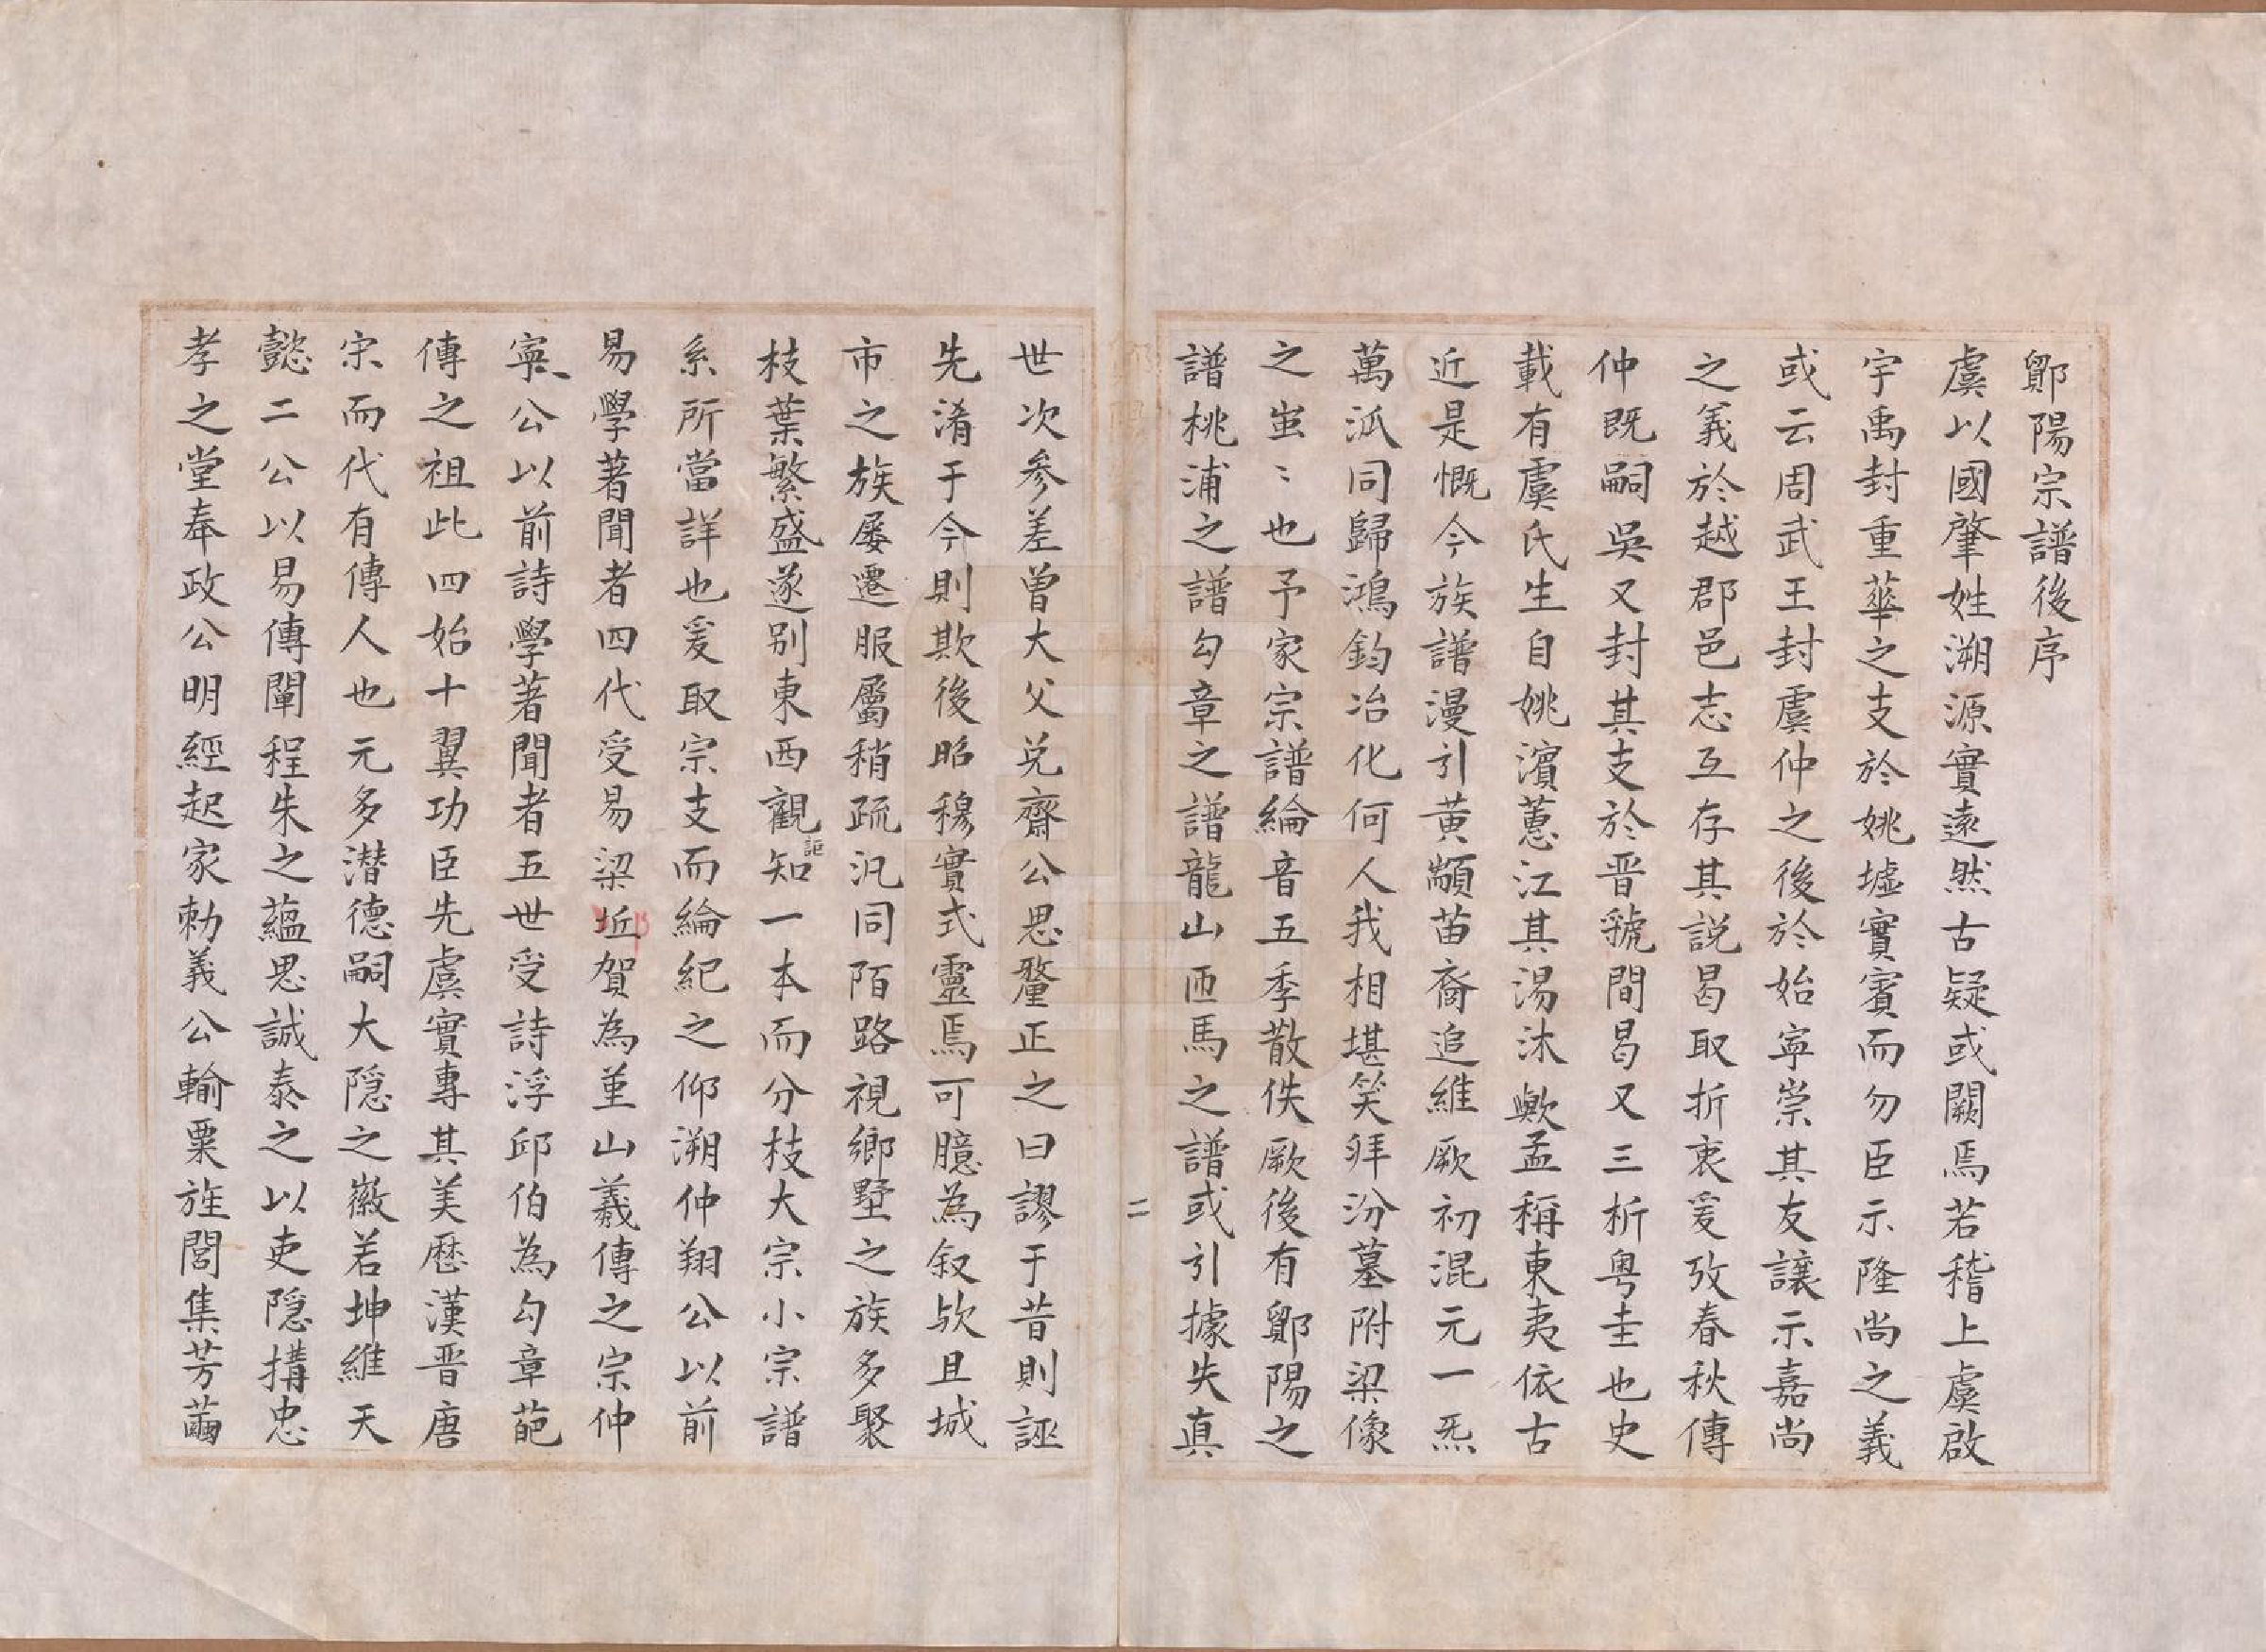 鄮陽宗譜後序
虞以國肇姓溯源實遠然古疑或闕焉若稽上虞啟
宇禹封重華之支於姚墟實賓而勿臣示隆尚之義
或云周武王封虞仲之後於始寧崇其友讓示嘉尚
之義於越郡邑志互存其説曷取折衷爰攷春秋傳
仲既嗣吳又封其支於晋虢間曷又三析粤圭也史
載有虞氏生自姚濱蒽江其湯沐歟孟稱東夷依古
近是慨今族譜漫引黄顓苗裔追維厥初混元一炁
萬泒同歸鴻鈞冶化何人我相堪笑拜汾墓附梁像
之蚩〻也予家宗譜綸音五季散佚厥後有鄮陽之
譜桃浦之譜勾章之譜龍山匝馬之譜或引據失真
二
世次參差曾大父兑齋公思釐正之曰謬于昔則誣
先淆于今則欺後昭穆實式靈焉可臆為叙欤且城
市之族屡遷服屬稍疏汎同陌路視鄉墅之族多聚
枝葉繁盛遂别東西觀詎知一本而分枝大宗小宗譜
系所當詳也爰取宗支而綸紀之仰溯仲翔公以前
易學著聞者四代受易梁丘賀為堇山羲傳之宗仲
寧公以前詩學著聞者五世受詩浮邱伯為勾章葩
傳之祖此四始十翼功臣先虞實專其美歷漢晋唐
宋而代有傳人也元多潜德嗣大隠之徽若坤維天
懿二公以易傳闡程朱之蘊思誠泰之以吏隠搆忠
孝之堂奉政公明經起家勅義公輸粟旌閭集芳薾